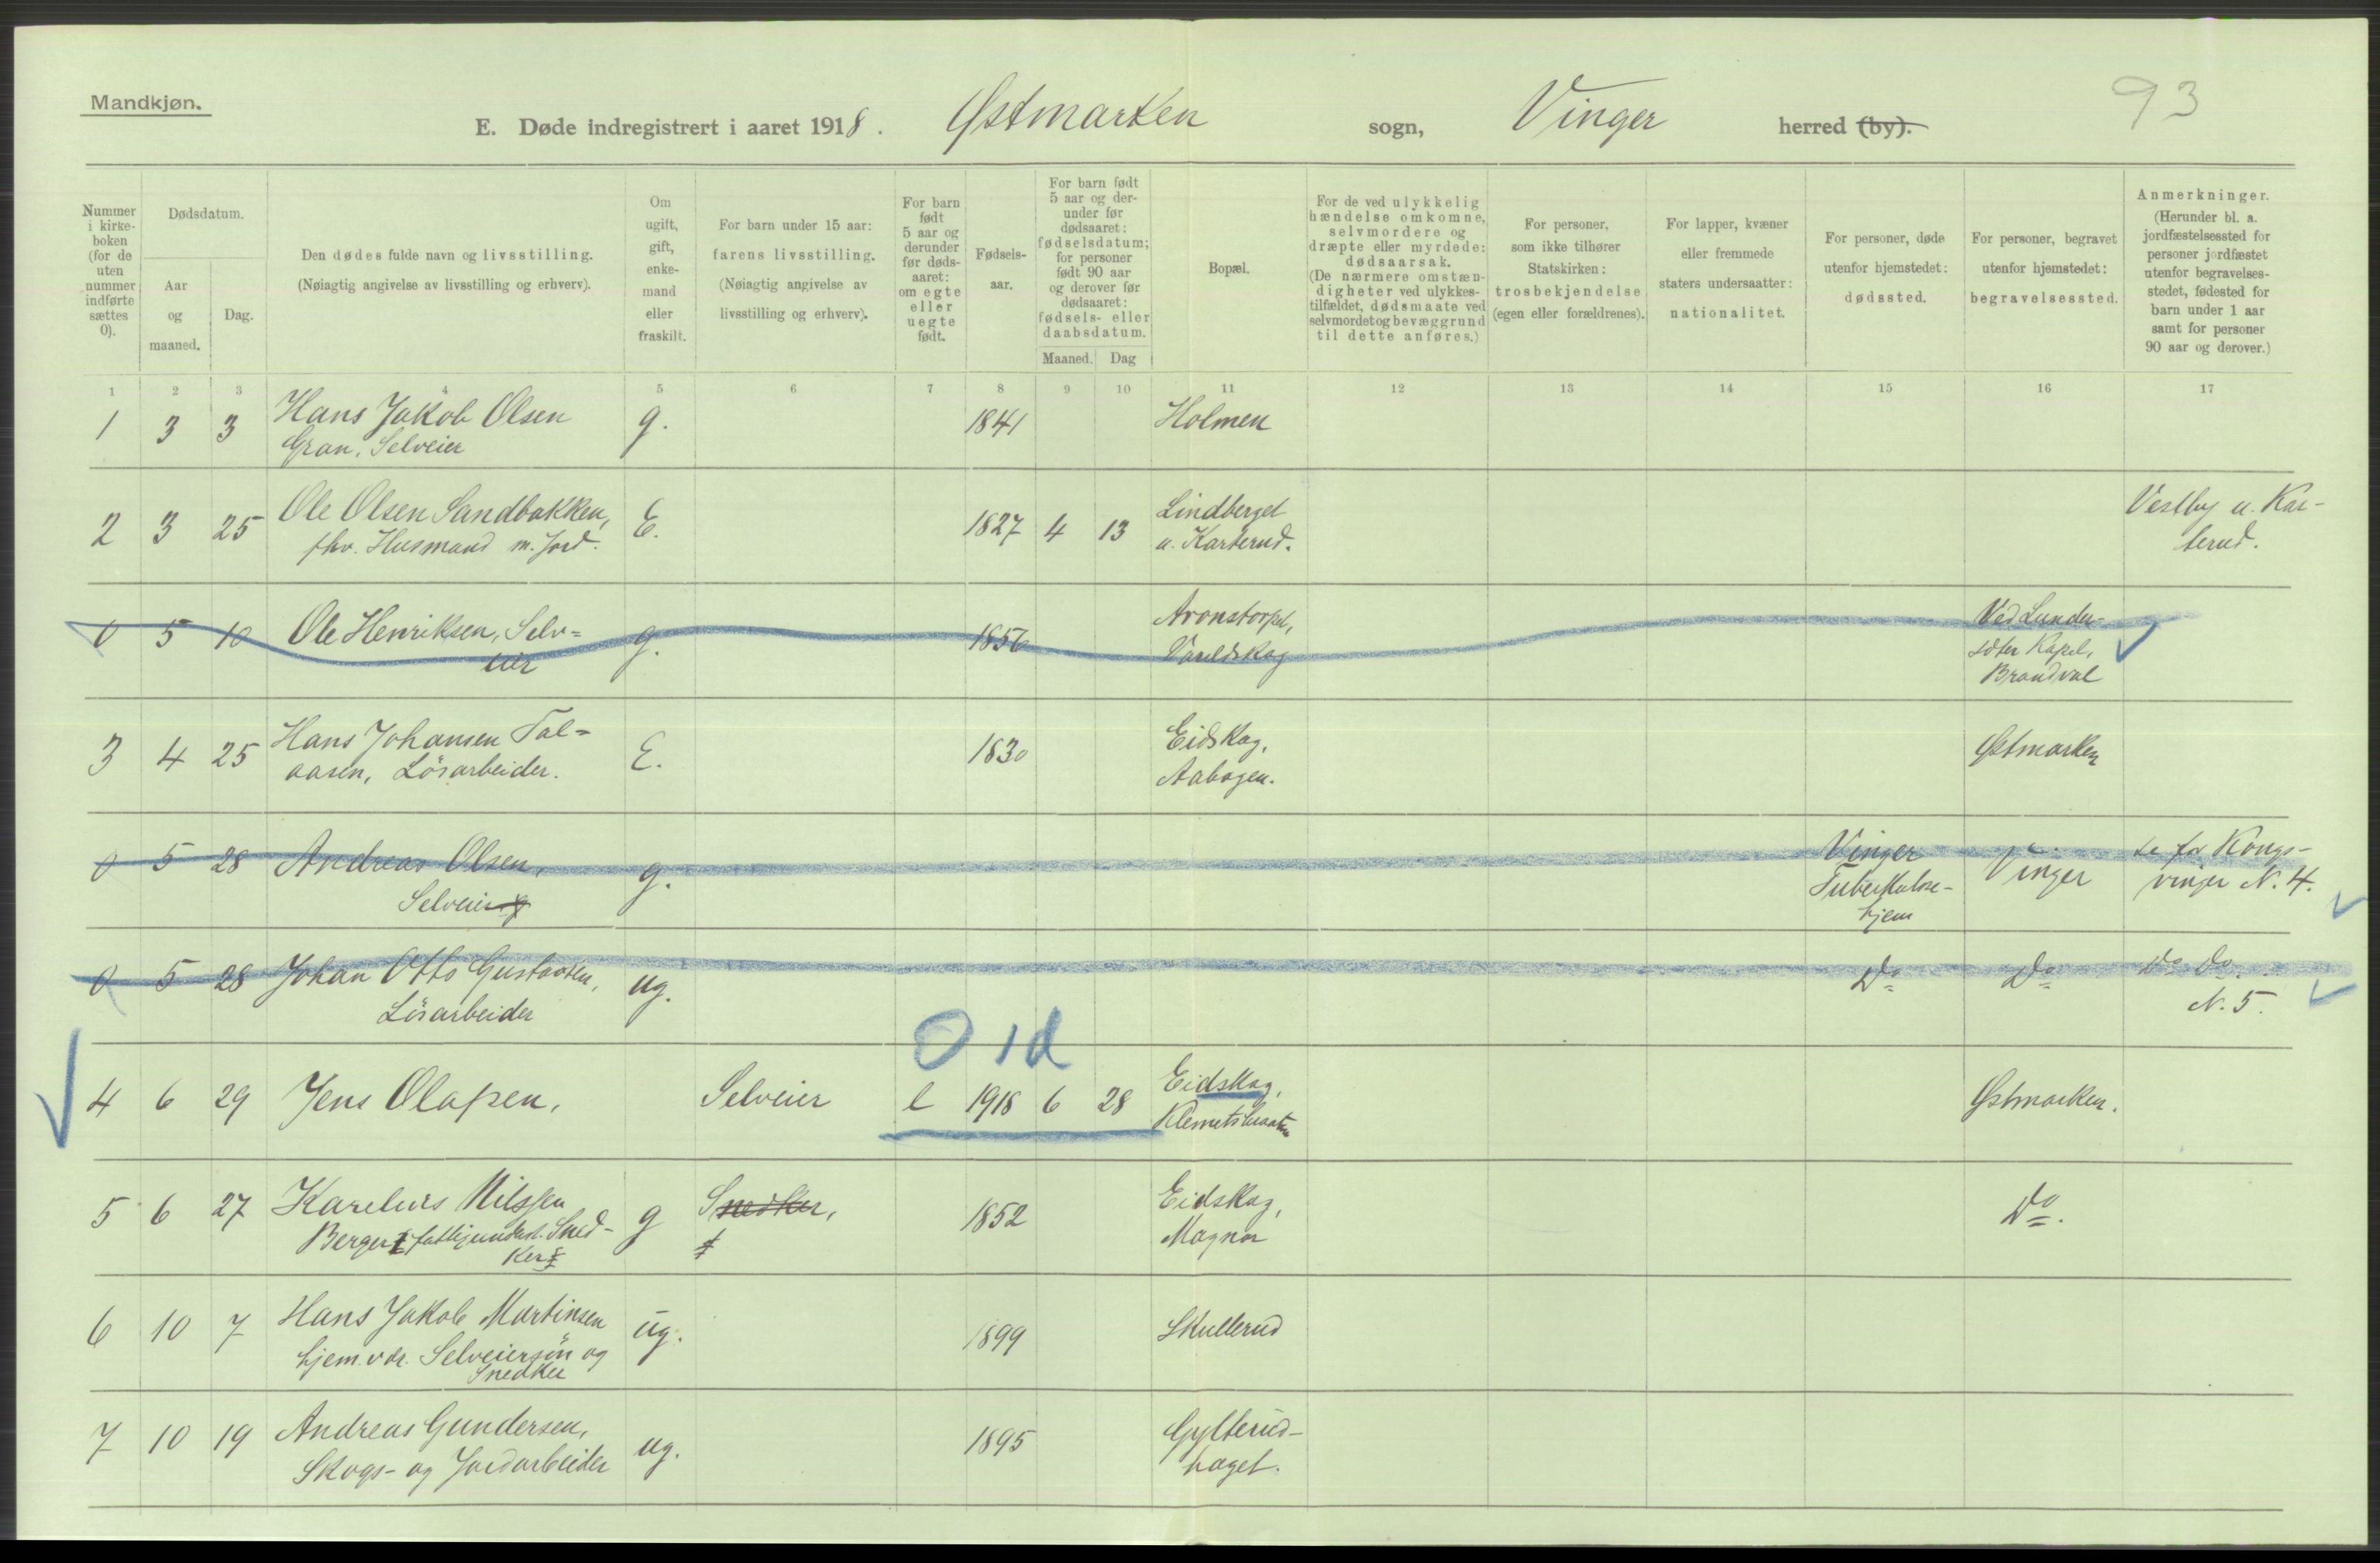 Mandkjøn.
93
E. Døde indregistrert i aaret 1918. Østmarken sogn, Vinger herred (by).
Nummer i kirke- boken (for de uten nummer indførte sættes 0).
Dødsdatum.
Aar og maaned.
Dag.
Den dødes fulde navn og livsstilling.
(Nøiagtig angivelse av livsstilling og erhverv).
Om ugift, gift, enke- mand eller fraskilt.
For barn under 15 aar:
farens livsstilling.
(Nøiagtig angivelse av
livsstilling og erhverv).
For barn født 5 aar og derunder før døds- aaret: om egte eller uegte født.
Fødsels- aar.
For barn født 5 aar og der- under før dødsaaret: fødselsdatum; for personer født 90 aar og derover før dødsaaret: fødsels- eller daabsdatum.
Maaned. Dag
Bopæl.
For de ved ulykkelig hændelse omkomne, selvmordere og dræpte eller myrdede: dødsaarsak. (De nærmere omstæn- digheter ved ulykkes- tilfældet, dødsmaate ved selvmordet og bevæggrund til dette anføres.)
For personer, som ikke tilhører Statskirken: trosbekjendelse (egen eller forældrenes).
For lapper, kvæner eller fremmede staters undersaatter: nationalitet.
For personer, døde utenfor hjemstedet: dødssted.
For personer, begravet utenfor hjemstedet: begravelsessted.
Anmerkninger. (Herunder bl. a. jordfæstelsessted for personer jordfæstet utenfor begravelses- stedet, fødested for barn under 1 aar samt for personer 90 aar og derover.)
1 2 3 4 5 6 7 8 9 10 11 12 13 14 15 16 17
1 3 3 Hans Jakob Olsen g. 1841 Holmen
Gran, Selveier
2 3 25 Ole Olsen Sandbakken, E. 1827 4 13 Lindberget Vestby u. Kar-
fhv. Husmand m. Jord. u. Karterud. terud.
0 5 10 Ole Henriksen, Selv= g. 1856 Aronstorpet, Ved Lunder-
eier Varldskog sæter Kapel,
Brandval
3 4 25 Hans Johansen Tal= E. 1830 Eidskog, Østmarken
aasen, Løsarbeider. Aabogen.
0 5 28 Andreas Olsen, g. Vinger Vinger se for Kongs-
Selveier Tuberkulose- vinger N. 4.
hjem
0 5 28 Johan Otto Gustavsen, ug. Do Do Do Do.
Løsarbeider N. 5.
0 1d
4 6 29 Jens Olafsen, Selveier e 1918 6 28 Eidskog, Østmarken.
5 6 27 Karelius Nilssen g Snedker, 1852 Eidskog, Do.
Berger, fattigunderst. Sned- Magnor
ker
6 10 7 Hans Jakob Martinsen ug. 1899 Skullerud
hjem.vær. Selveiersøn og
Snedker
7 10 19 Andreas Gundersen, ug. 1895 Gylterud-
Skogs- og Jordarbeider haget.